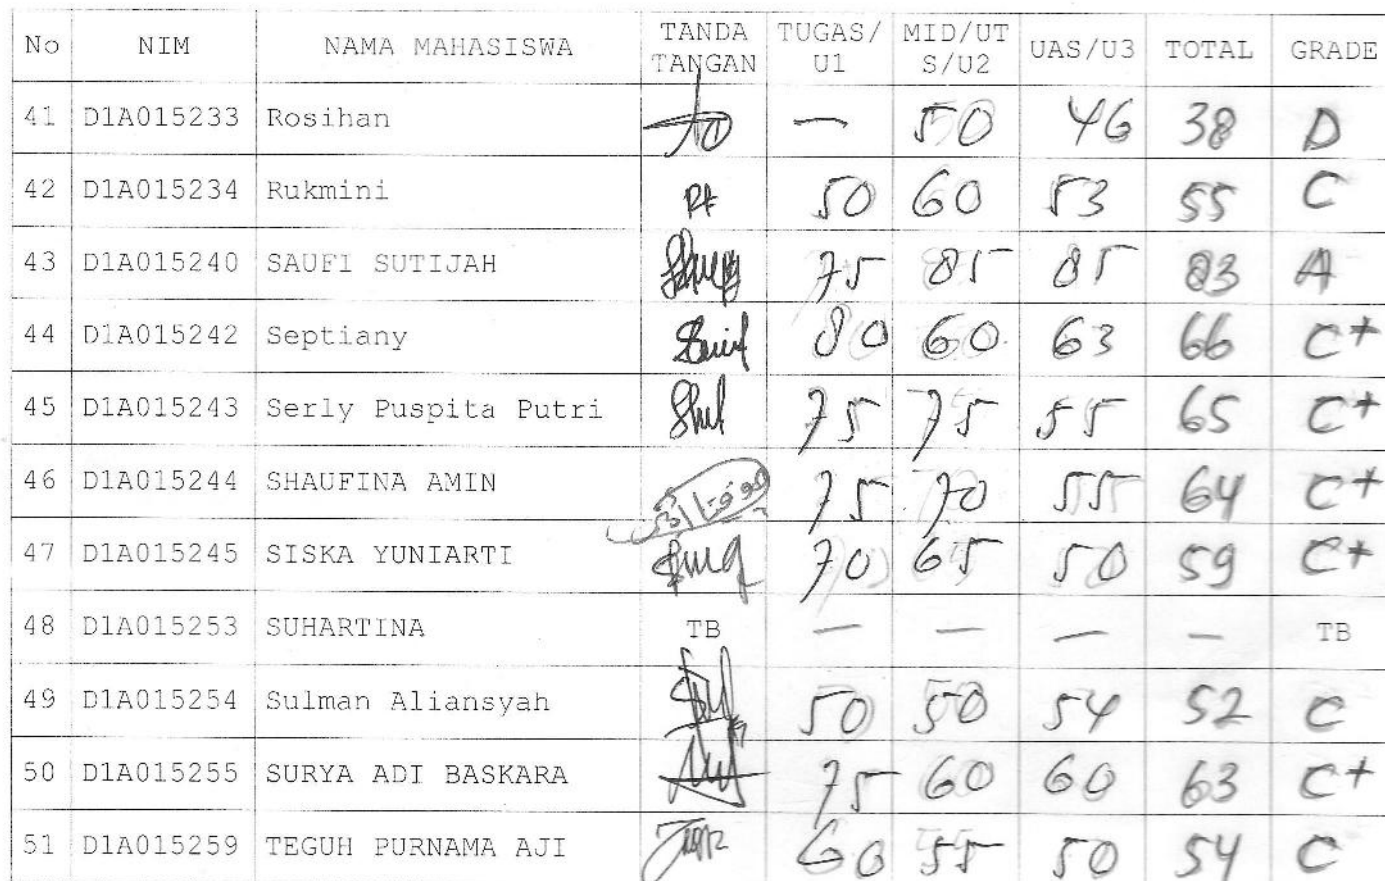 No NIM NAMA MAHASISWA TANDA TANGAN TUGAS/U1 MID/UTS/U2 UAS/U3 TOTAL GRADE
41 D1A015233 Rosihan — 50 46 38 D
42 D1A015234 Rukmini 50 60 53 55 C
43 D1A015240 SAUFI SUTIJAH 75 85 85 83 A
44 D1A015242 Septiany 80 60 63 66 C+
45 D1A015243 Serly Puspita Putri 75 75 55 65 C+
46 D1A015244 SHAUFINA AMIN 75 70 55 64 C+
47 D1A015245 SISKA YUNIARTI 70 65 50 59 C+
48 D1A015253 SUHARTINA TB — — — — TB
49 D1A015254 Sulman Aliansyah 50 50 54 52 C
50 D1A015255 SURYA ADI BASKARA 75 60 60 63 C+
51 D1A015259 TEGUH PURNAMA AJI 60 55 50 54 C